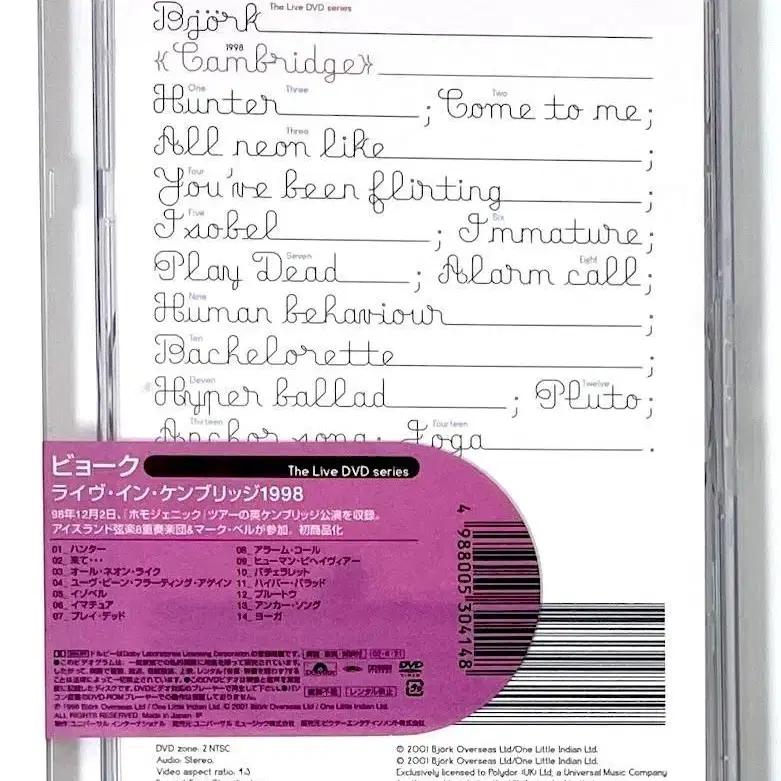 Björk The Live DVD series
1998
《Cambridge》
One Three Two
Hunter ; Come to me;
Three
All neon like ;
Four
You've been flirting ;
Five Six
Isobel ; Immature;
Seven Eight
Play Dead ; Alarm call;
Nine
Human behaviour ;
Ten
Bachelorette ;
Eleven Twelve
Hyper ballad ; Pluto;
Thirteen Fourteen
Anchor song; Joga .
ビョーク The Live DVD series
ライヴ・イン・ケンブリッジ1998
98年12月2日、「ホモジェニック」ツアーの英ケンブリッジ公演を収録。
アイスランド弦楽8重奏楽団&マーク・ベルが参加。初商品化
01_ハンター
02_来て・・・
03_オール・ネオン・ライク
04_ユーヴ・ビーン・フラーティング・アゲイン
05_イゾベル
06_イマチュア
07_プレイ・デッド
08_アラーム・コール
09_ヒューマン・ビヘイヴィアー
10_バチェラレット
11_ハイパー・バラッド
12_プルートウ
13_アンカー・ソング
14_ヨーガ
4 988005 304148
複製不能 レンタル禁止
℗ 1998 Björk Overseas Ltd / One Little Indian Ltd. © 2001 Björk Overseas Ltd / One Little Indian Ltd.
ALL RIGHTS RESERVED Made in Japan
DVD
DVD zone: 2 NTSC
Audio: Stereo.
Video aspect ratio: 4:3
© 2001 Bjork Overseas Ltd/One Little Indian Ltd.
© 2001 Bjork Overseas Ltd/One Little Indian Ltd.
Exclusively licensed to Polydor (UK) Ltd, a Universal Music Company